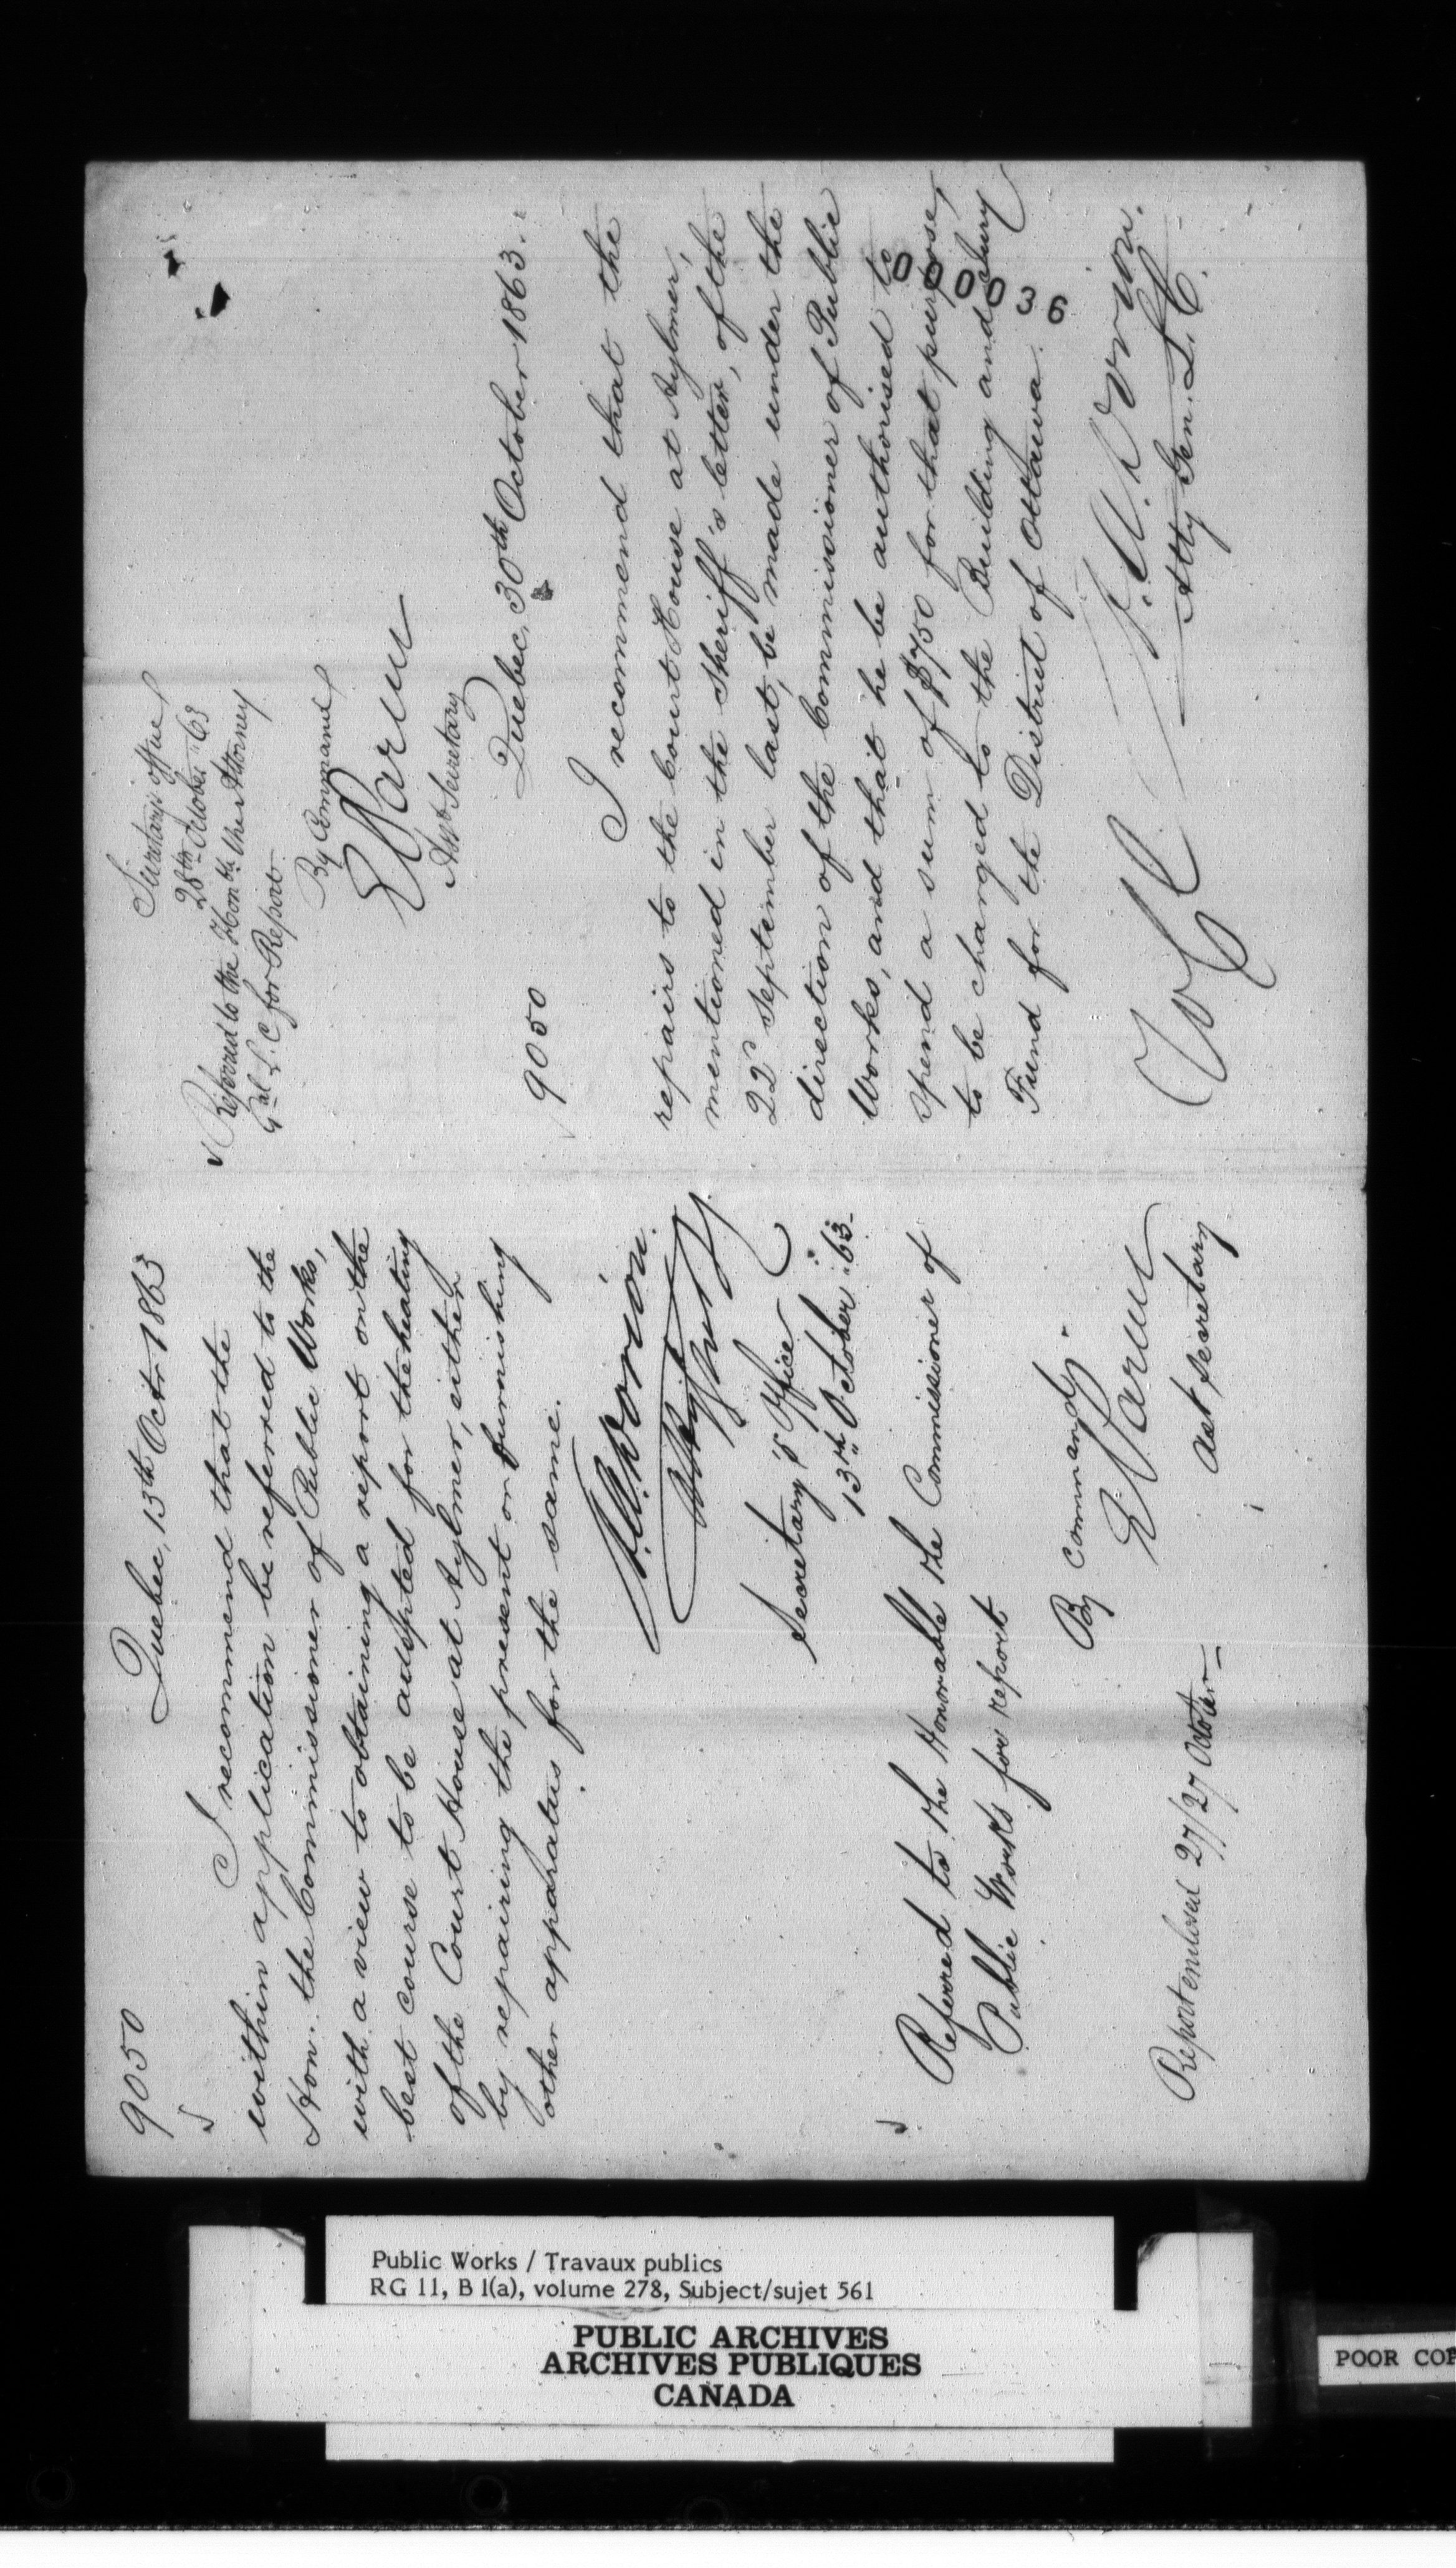 9050
Quebec, 13th Octr 1863
I recommend that the
within application be referred to the
Hon. the Commissioner of Public Works,
with a view to obtaining a report on the
best course to be adopted for the heating
of the Court House at Aylmer, either
by repairing the present or furnishing
other apparatus for the same.
A.A. Dorion.
Secretary's Office
13th October "63-
Referred to the Honorable the Commissioner of
Public Works for report
By Command,
E Parent
Ast Secretary
Report enclosed 27/27 October
Secretary's office
28th October "63
Referred to the Honble the Attorney
Gal L. C for Report
By Command
E Parent
Asst Secretary
9050
Quebec, 30th October 1863.
I recommend that the
repairs to the Court House at Aylmer,
mentioned in the Sheriff's letter, of the
22d September last, be made under the
direction of the Commissioner of Public
Works, and that he be authorised to
spend a sum of $750 for that purpose,
to be charged to the Building and Jury
Fund for the District of Ottawa.
A.A. Dorion.
Atty Gen. L.C.
000036
Public Works / Travaux publics
RG 11, B 1(a), volume 278, Subject/sujet 561
PUBLIC ARCHIVES
ARCHIVES PUBLIQUES
CANADA
POOR COP